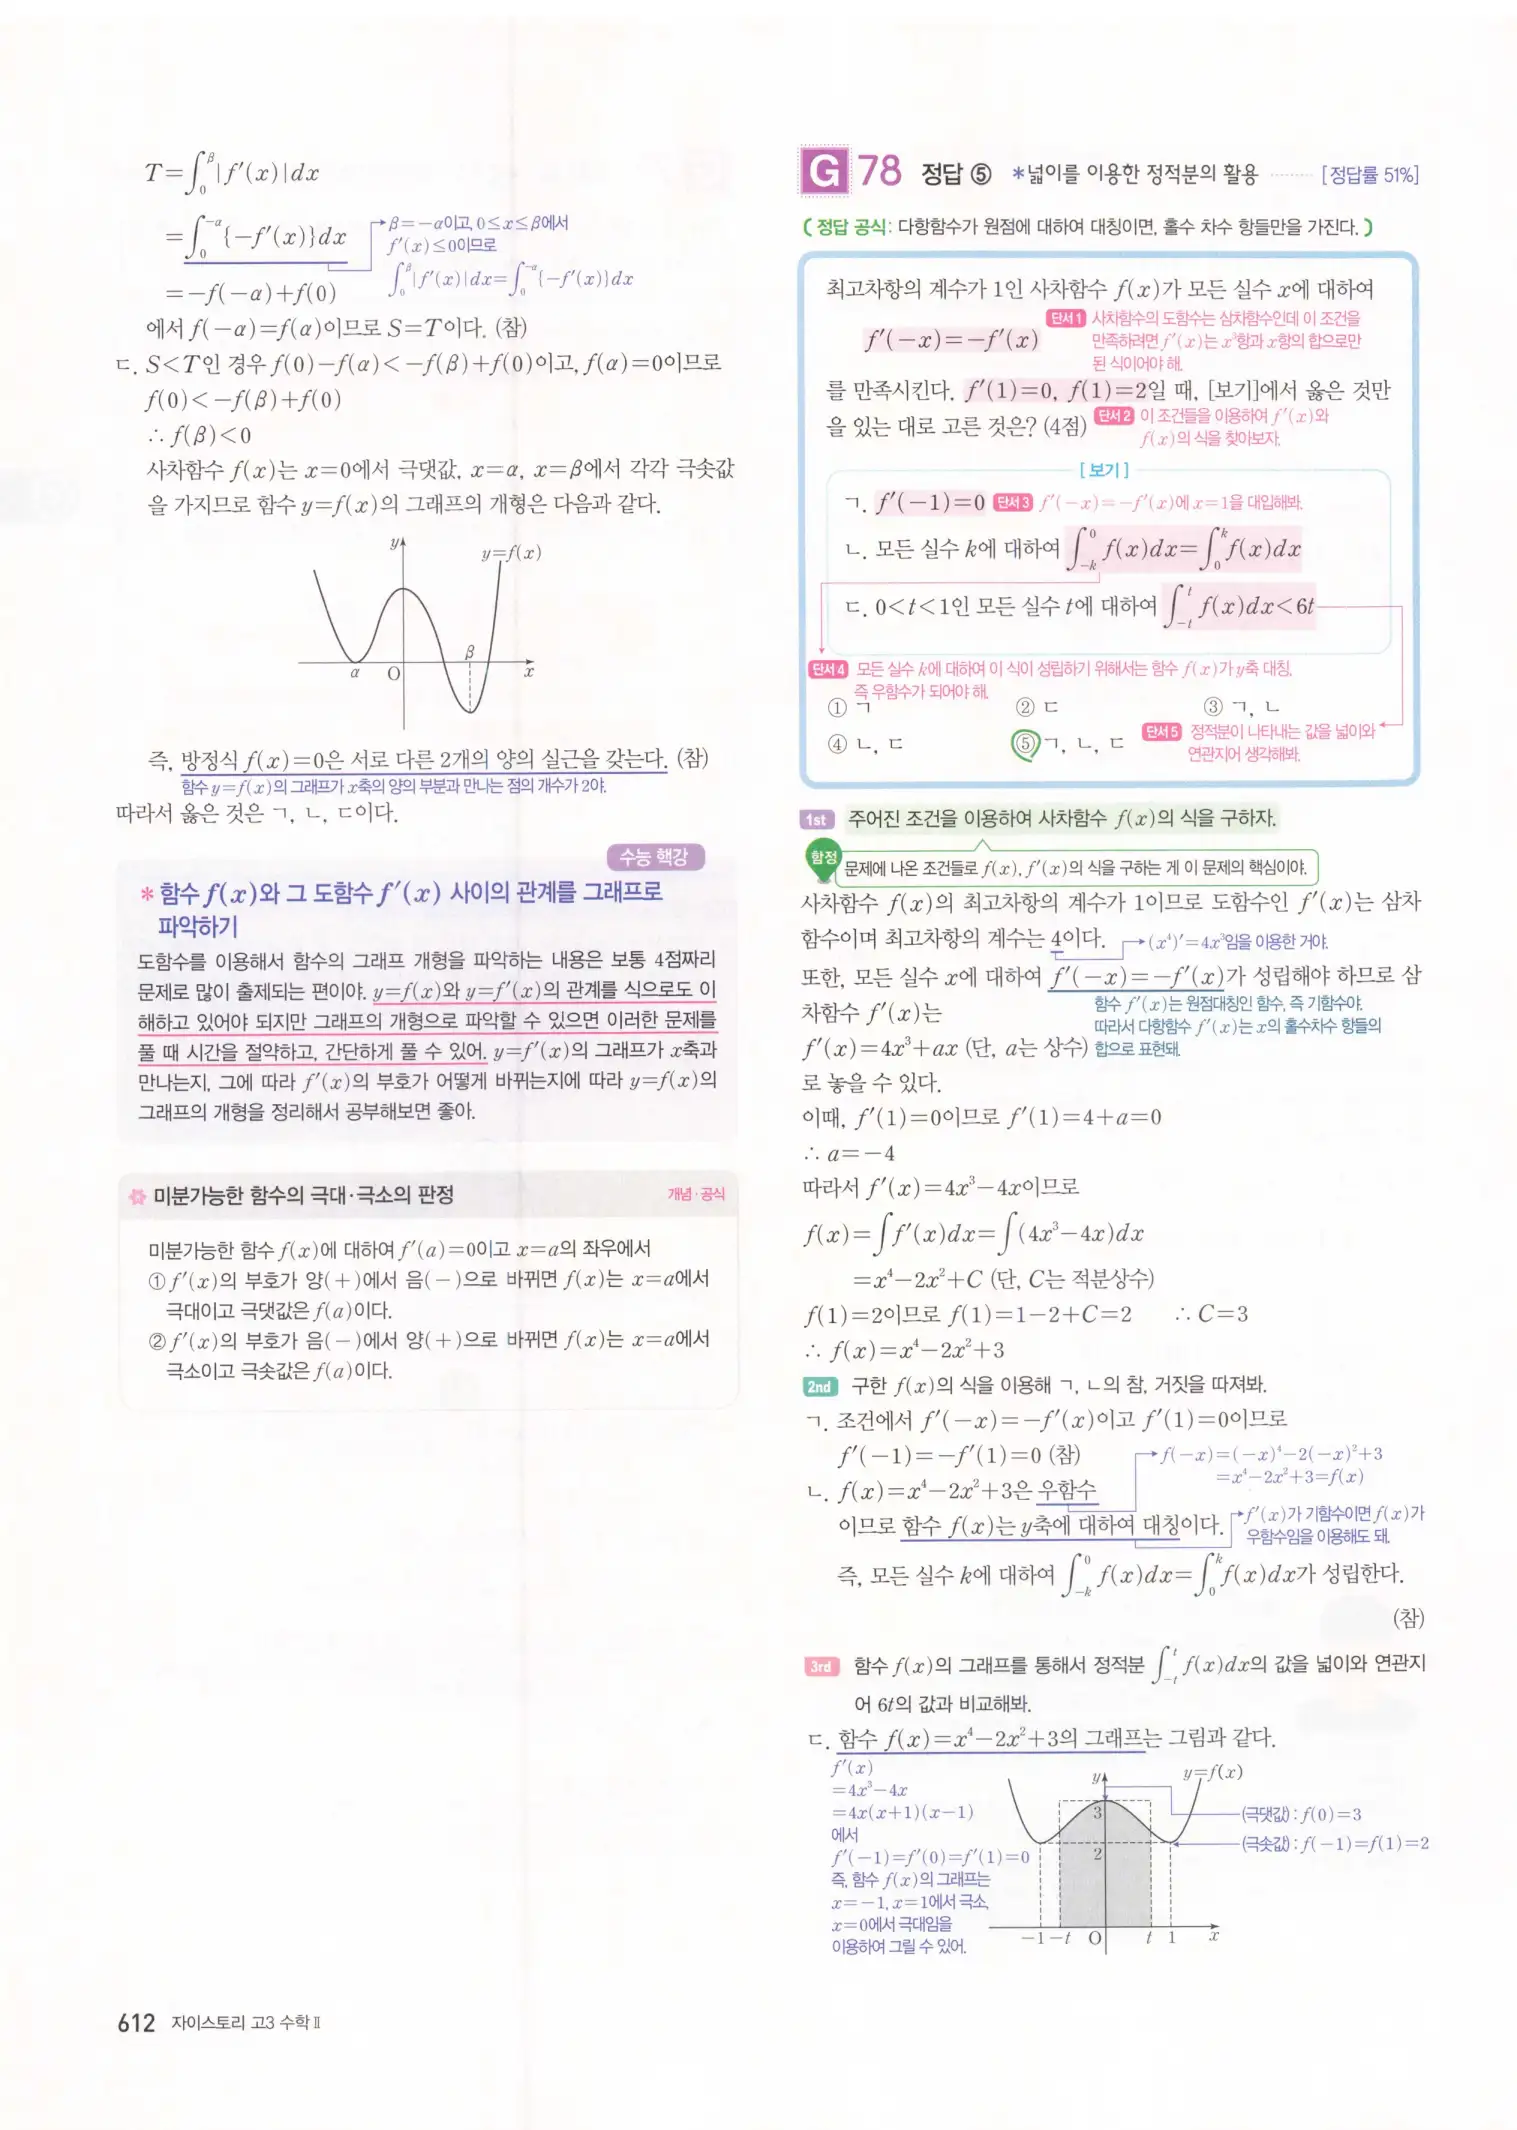 T=∫₀^β|f′(x)|dx
=∫₀^{-α}{-f′(x)}dx
β=-α이고, 0≤x≤β에서
f′(x)≤0이므로
∫₀^β|f′(x)|dx=∫₀^{-α}{-f′(x)}dx
=-f(-α)+f(0)
에서 f(-α)=f(α)이므로 S=T이다. (참)
ㄷ. S<T인 경우 f(0)-f(α)<-f(β)+f(0)이고, f(α)=0이므로
f(0)<-f(β)+f(0)
∴ f(β)<0
사차함수 f(x)는 x=0에서 극댓값, x=α, x=β에서 각각 극솟값
을 가지므로 함수 y=f(x)의 그래프의 개형은 다음과 같다.
y
y=f(x)
α O β x
즉, 방정식 f(x)=0은 서로 다른 2개의 양의 실근을 갖는다. (참)
함수 y=f(x)의 그래프가 x축의 양의 부분과 만나는 점의 개수가 2야.
따라서 옳은 것은 ㄱ, ㄴ, ㄷ이다.
수능 핵강
* 함수 f(x)와 그 도함수 f′(x) 사이의 관계를 그래프로
파악하기
도함수를 이용해서 함수의 그래프 개형을 파악하는 내용은 보통 4점짜리
문제로 많이 출제되는 편이야. y=f(x)와 y=f′(x)의 관계를 식으로도 이
해하고 있어야 되지만 그래프의 개형으로 파악할 수 있으면 이러한 문제를
풀 때 시간을 절약하고, 간단하게 풀 수 있어. y=f′(x)의 그래프가 x축과
만나는지, 그에 따라 f′(x)의 부호가 어떻게 바뀌는지에 따라 y=f(x)의
그래프의 개형을 정리해서 공부해보면 좋아.
미분가능한 함수의 극대·극소의 판정
개념·공식
미분가능한 함수 f(x)에 대하여 f′(a)=0이고 x=a의 좌우에서
① f′(x)의 부호가 양(+)에서 음(-)으로 바뀌면 f(x)는 x=a에서
극대이고 극댓값은 f(a)이다.
② f′(x)의 부호가 음(-)에서 양(+)으로 바뀌면 f(x)는 x=a에서
극소이고 극솟값은 f(a)이다.
612 자이스토리 고3 수학Ⅱ
G 78 정답 ⑤ *넓이를 이용한 정적분의 활용 ········ [정답률 51%]
( 정답 공식: 다항함수가 원점에 대하여 대칭이면, 홀수 차수 항들만을 가진다. )
최고차항의 계수가 1인 사차함수 f(x)가 모든 실수 x에 대하여
f′(-x)=-f′(x)
단서1 사차함수의 도함수는 삼차함수인데 이 조건을
만족하려면 f′(x)는 x³항과 x항의 합으로만
된 식이어야 해.
를 만족시킨다. f′(1)=0, f(1)=2일 때, [보기]에서 옳은 것만
을 있는 대로 고른 것은? (4점)
단서2 이 조건들을 이용하여 f′(x)와
f(x)의 식을 찾아보자.
[보기]
ㄱ. f′(-1)=0 단서3 f′(-x)=-f′(x)에 x=1을 대입해봐.
ㄴ. 모든 실수 k에 대하여 ∫_{-k}^0 f(x)dx=∫₀^k f(x)dx
ㄷ. 0<t<1인 모든 실수 t에 대하여 ∫_{-t}^t f(x)dx<6t
단서4 모든 실수 k에 대하여 이 식이 성립하기 위해서는 함수 f(x)가 y축 대칭,
즉 우함수가 되어야 해.
① ㄱ ② ㄷ ③ ㄱ, ㄴ
④ ㄴ, ㄷ ⑤ ㄱ, ㄴ, ㄷ
단서5 정적분이 나타내는 값을 넓이와
연관지어 생각해봐.
1st 주어진 조건을 이용하여 사차함수 f(x)의 식을 구하자.
함정 문제에 나온 조건들로 f(x), f′(x)의 식을 구하는 게 이 문제의 핵심이야.
사차함수 f(x)의 최고차항의 계수가 1이므로 도함수인 f′(x)는 삼차
함수이며 최고차항의 계수는 4이다. (x⁴)′=4x³임을 이용한 거야.
또한, 모든 실수 x에 대하여 f′(-x)=-f′(x)가 성립해야 하므로 삼
차함수 f′(x)는
함수 f′(x)는 원점대칭인 함수, 즉 기함수야.
따라서 다항함수 f′(x)는 x의 홀수차수 항들의
합으로 표현돼.
f′(x)=4x³+ax (단, a는 상수)
로 놓을 수 있다.
이때, f′(1)=0이므로 f′(1)=4+a=0
∴ a=-4
따라서 f′(x)=4x³-4x이므로
f(x)=∫f′(x)dx=∫(4x³-4x)dx
=x⁴-2x²+C (단, C는 적분상수)
f(1)=2이므로 f(1)=1-2+C=2 ∴ C=3
∴ f(x)=x⁴-2x²+3
2nd 구한 f(x)의 식을 이용해 ㄱ, ㄴ의 참, 거짓을 따져봐.
ㄱ. 조건에서 f′(-x)=-f′(x)이고 f′(1)=0이므로
f′(-1)=-f′(1)=0 (참)
f(-x)=(-x)⁴-2(-x)²+3
=x⁴-2x²+3=f(x)
ㄴ. f(x)=x⁴-2x²+3은 우함수
이므로 함수 f(x)는 y축에 대하여 대칭이다.
f′(x)가 기함수이면 f(x)가
우함수임을 이용해도 돼.
즉, 모든 실수 k에 대하여 ∫_{-k}^0 f(x)dx=∫₀^k f(x)dx가 성립한다.
(참)
3rd 함수 f(x)의 그래프를 통해서 정적분 ∫_{-t}^t f(x)dx의 값을 넓이와 연관지
어 6t의 값과 비교해봐.
ㄷ. 함수 f(x)=x⁴-2x²+3의 그래프는 그림과 같다.
f′(x)
=4x³-4x
=4x(x+1)(x-1)
에서
f′(-1)=f′(0)=f′(1)=0
즉, 함수 f(x)의 그래프는
x=-1, x=1에서 극소,
x=0에서 극대임을
이용하여 그릴 수 있어.
y
y=f(x)
3
2
(극댓값) : f(0)=3
(극솟값) : f(-1)=f(1)=2
-1 -t O t 1 x